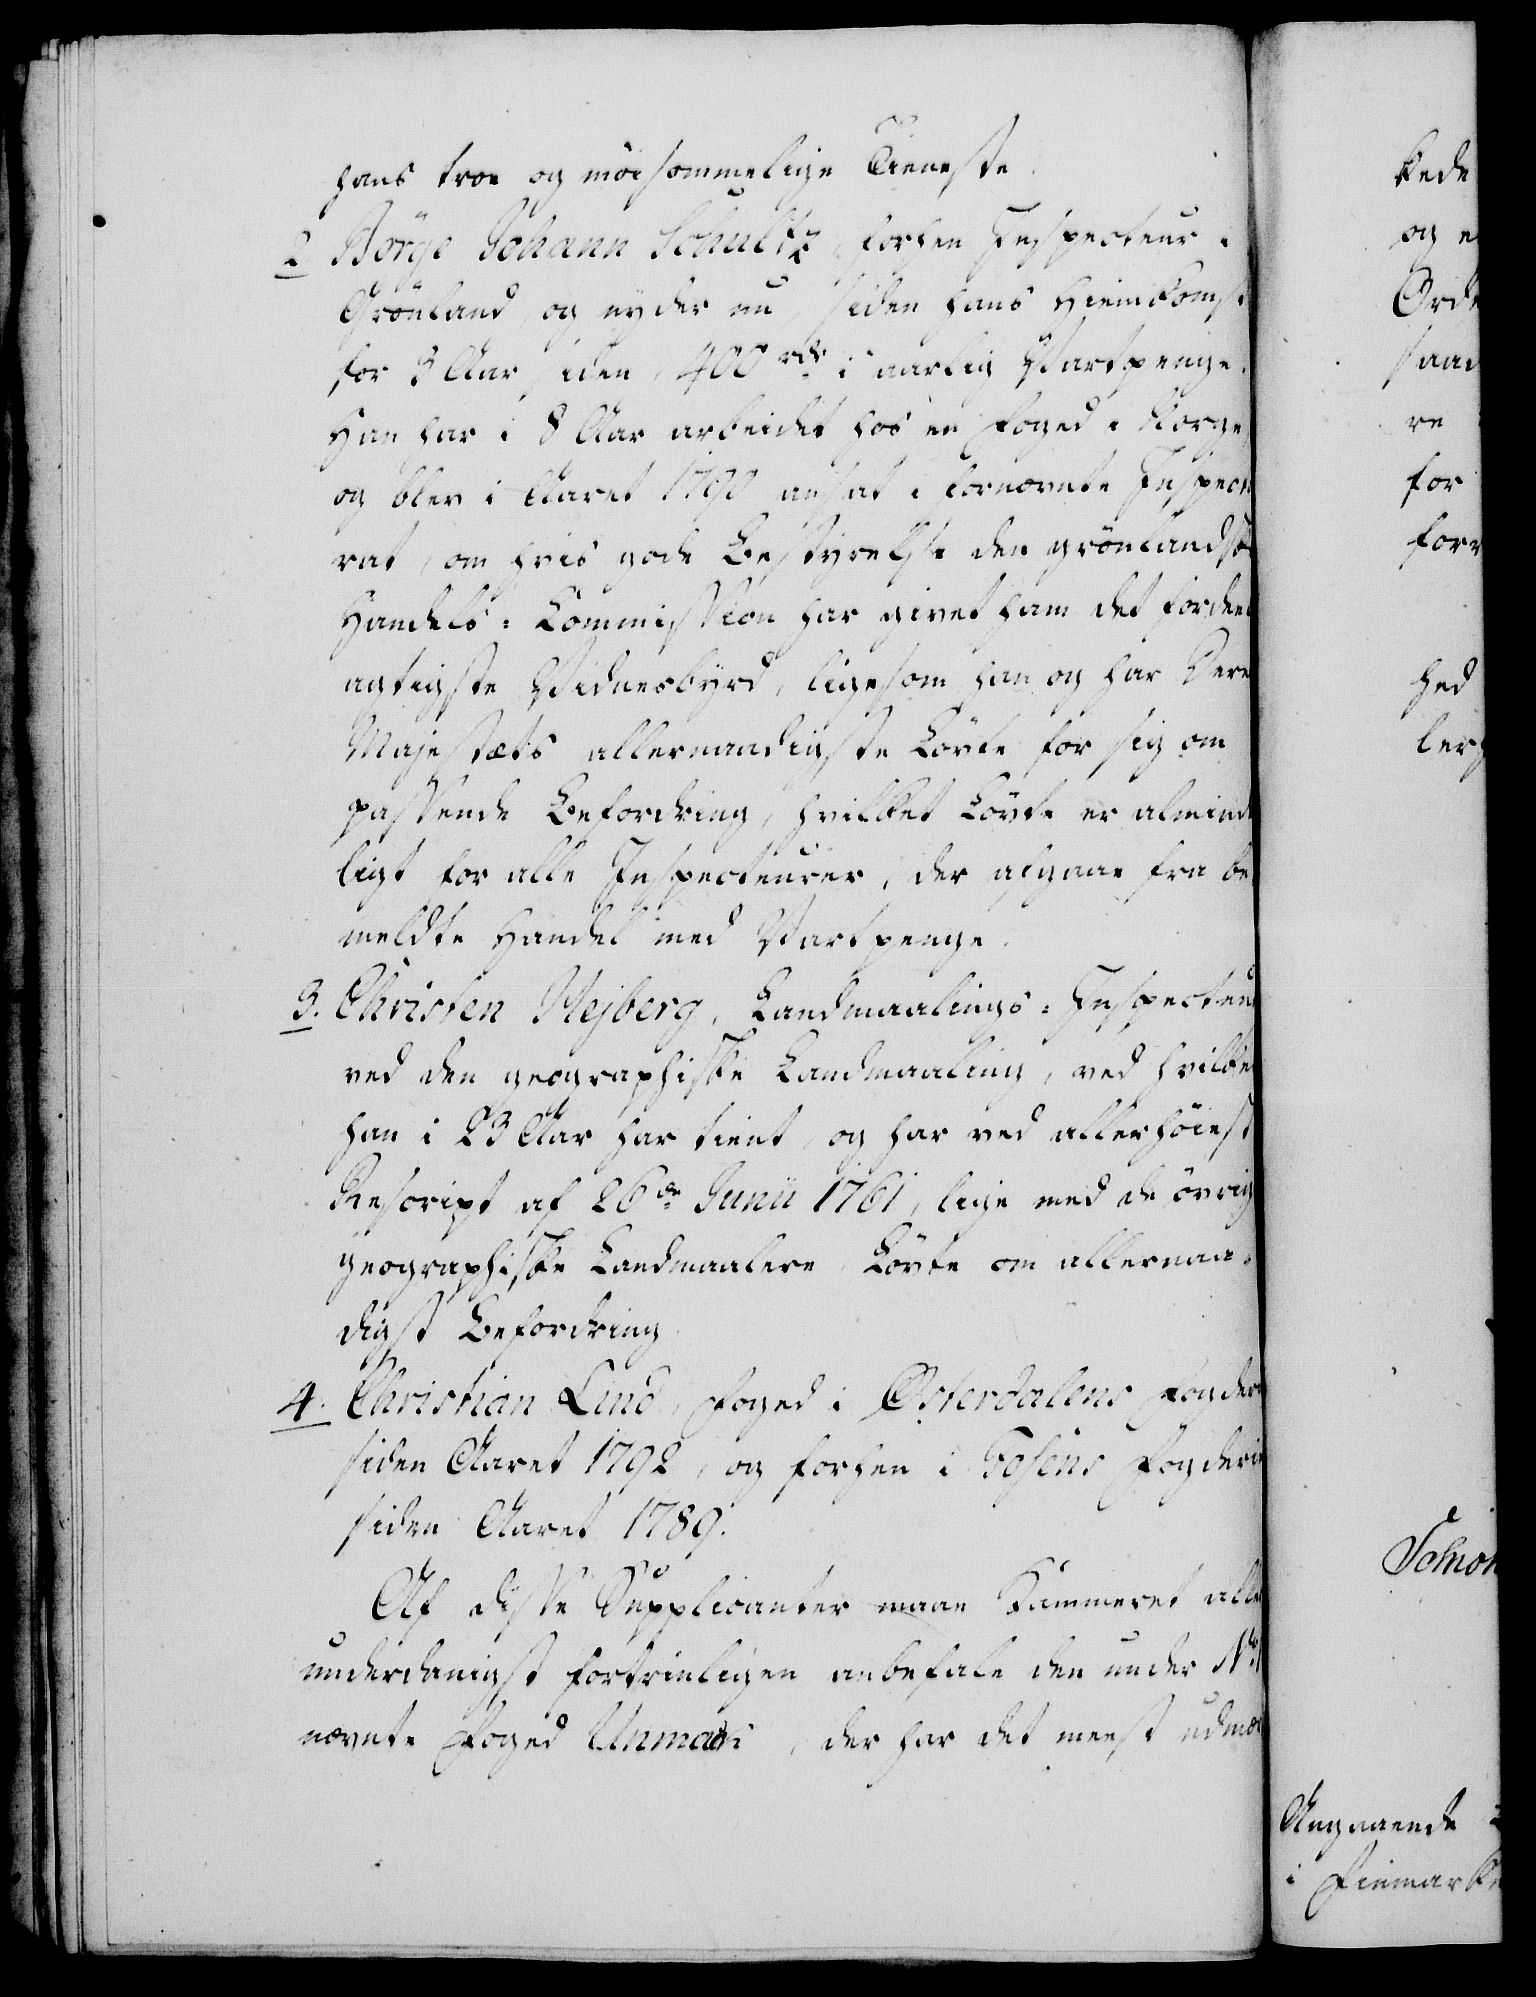 hans troe og møisommelige Tieneste.
2 Börge Johann Schultz, forhen Inspecteur i
Grønland, og nyder nu, siden hans Hiemkomst
for 3 Aar siden, 400 rdr i aarlig Vartpenge.
Han har i 8 Aar arbeidet hos en Foged i Norge,
og blev i Aaret 1790 ansat i fornævnte Inspecto
rat, om hvis gode Bestyrelse den grønlandske
Handels-Commission har givet ham det fordeel
agtigste Vidnesbyrd, ligesom han og har Deres
Majestæts allernaadigste Løvte for sig om
passende Befordring, hvilket Løvte er almind
ligt for alle Inspecteurer, der afgaae fra be
meldte Handel med Vartpenge.
3. Christen Mejberg, Landmaalings-Inspecteur
ved den geographiske Landmaaling, ved hvilken
han i 23 Aar har tient, og har ved allerhøiest
Rescript af 26de Junii 1761, lige med de øvrige
geographiske Landmaalere, Løvte om allernaa-
digst Befordring.
4. Christian Lind, Foged i Østerdalens Fogderie
siden Aaret 1792, og forhen i Fosens Fogderie
siden Aaret 1789.
Af disse Supplicanter maae Kammeret aller
underdanigst fortrinligen anbefale den under No 1
nævnte Foged Unmack, der har det meest udmær
kede
og e
Orde
saad
re
for
forr
hed
lerh
Angaaende
i Finmarken